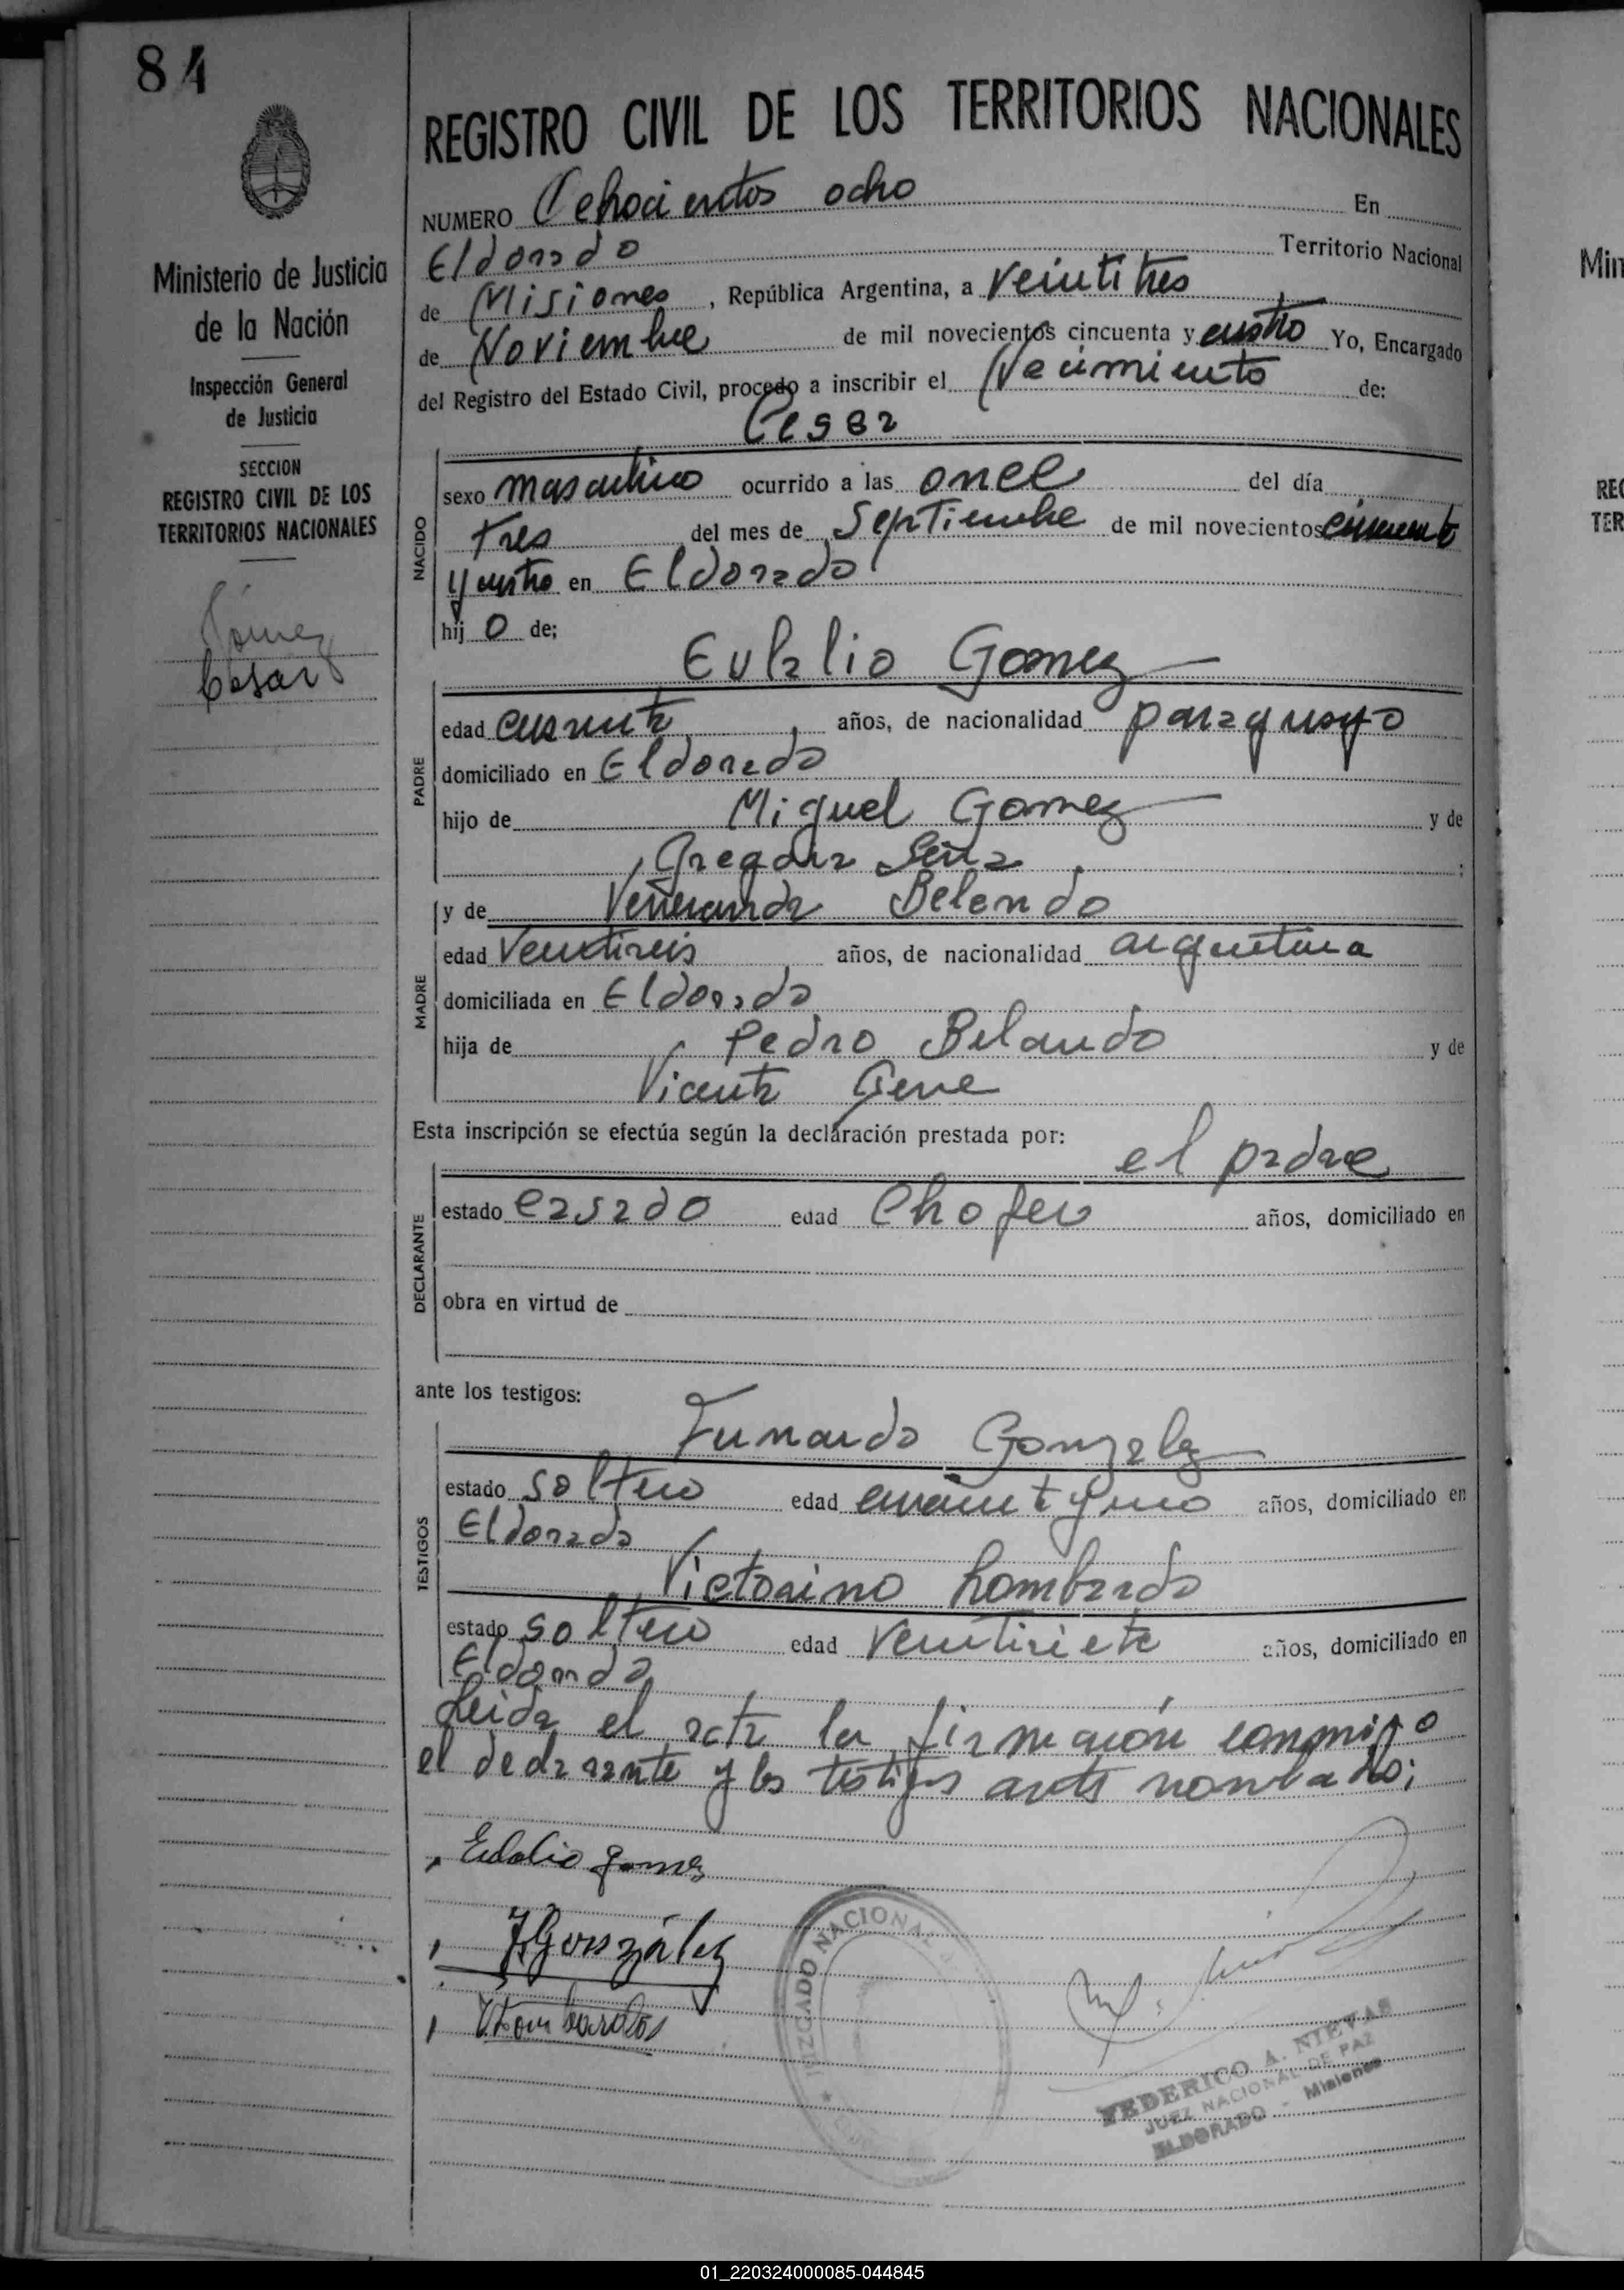 84
REGISTRO CIVIL DE LOS TERRITORIOS NACIONALES
NUMERO Ochocientos ocho En
Eldorado Territorio Nacional
de Misiones, República Argentina, a veintitres
de Noviembre de mil novecientos cincuenta y cuatro Yo, Encargado
del Registro del Estado Civil, procedo a inscribir el Nacimiento de:
Cesar
Ministerio de Justicia
de la Nación
Inspección General
de Justicia
SECCION
REGISTRO CIVIL DE LOS
TERRITORIOS NACIONALES
Gómez
César
NACIDO
sexo masculino ocurrido a las once del día
tres del mes de Septiembre de mil novecientos cincuenta
y cuatro en Eldorado
hij o de;
Eulalio Gomez
PADRE
edad cuarenta años, de nacionalidad paraguayo
domiciliado en Eldorado
hijo de Miguel Gomez y de
Gregoria ;
y de Veneranda Belando
MADRE
edad veintiseis años, de nacionalidad argentina
domiciliada en Eldorado
hija de Pedro Belando y de
Vicenta
Esta inscripción se efectúa según la declaración prestada por:
el padre
DECLARANTE
estado casado edad Chofer años, domiciliado en
obra en virtud de
ante los testigos:
TESTIGOS
Gonzalez
estado soltero edad cuarenta y uno años, domiciliado en
Eldorado
Victorino Lombardo
estado soltero edad veintisiete años, domiciliado en
Eldorado
Leida el acta la firmarón conmigo
el declarante y los testigos antes nombrados;
Eulalio gomez
González
V Lombardo
JUZGADO NACIONAL
FEDERICO A. NIEVAS
JUEZ NACIONAL DE PAZ
ELDORADO - Misiones
Min
REG
TER
01_220324000085-044845